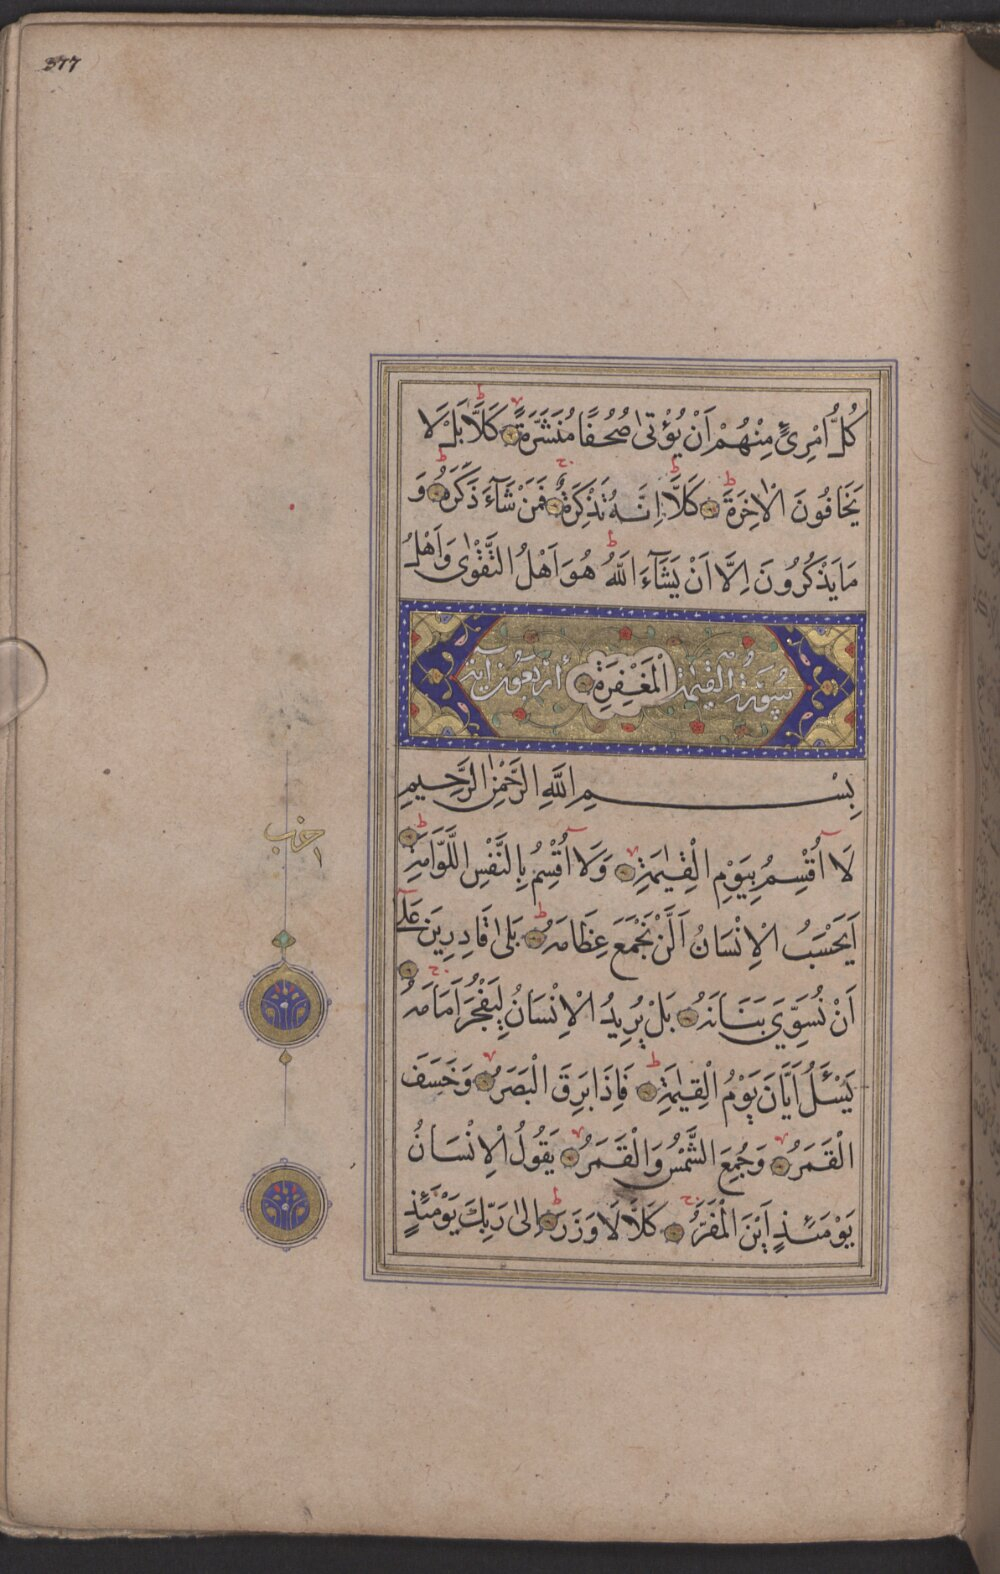 377
كُلُّ امْرِئٍ مِنْهُمْ اَنْ يُؤْتٰى صُحُفًا مُنَشَّرَةً كَلَّا بَلْ لَا
يَخَافُونَ الْاٰخِرَةَ كَلَّا اِنَّهُ تَذْكِرَةٌ فَمَنْ شَآءَ ذَكَرَهُ وَ
مَا يَذْكُرُونَ اِلَّا اَنْ يَشَآءَ اللّٰهُ هُوَ اَهْلُ التَّقْوٰى وَاَهْلُ
الْمَغْفِرَةِ
سُورَةُ الْقِيٰمَةِ اَرْبَعُونَ اٰيَة
بِسْمِ اللّٰهِ الرَّحْمٰنِ الرَّحِيمِ
لَا اُقْسِمُ بِيَوْمِ الْقِيٰمَةِ وَلَا اُقْسِمُ بِالنَّفْسِ اللَّوَّامَةِ
اَيَحْسَبُ الْاِنْسَانُ اَلَّنْ نَجْمَعَ عِظَامَهُ بَلٰى قَادِرِينَ عَلٰٓى
اَنْ نُسَوِّيَ بَنَانَهُ بَلْ يُرِيدُ الْاِنْسَانُ لِيَفْجُرَ اَمَامَهُ
يَسْـَٔلُ اَيَّانَ يَوْمُ الْقِيٰمَةِ فَاِذَا بَرِقَ الْبَصَرُ وَخَسَفَ
الْقَمَرُ وَجُمِعَ الشَّمْسُ وَالْقَمَرُ يَقُولُ الْاِنْسَانُ
يَوْمَئِذٍ اَيْنَ الْمَفَرُّ كَلَّا لَا وَزَرَ اِلٰى رَبِّكَ يَوْمَئِذٍ